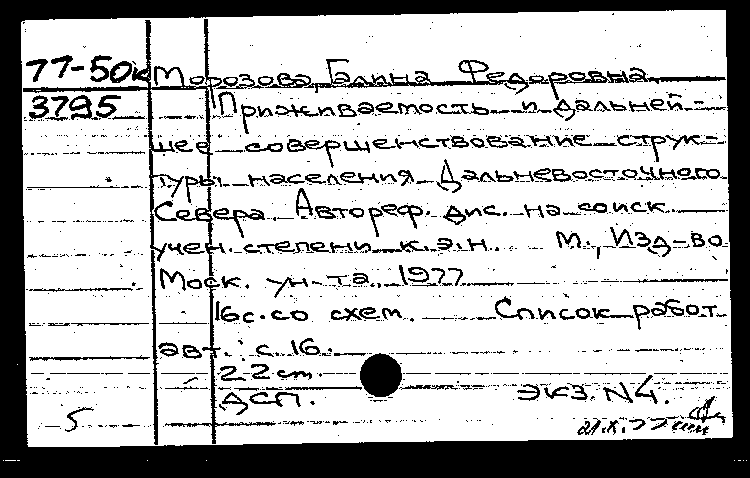 77-50к Морозова, Галина Федоровна.
3795 Приживаемость и дальней-
шее совершенствование струк-
туры населения Дальневосточного
Севера. Автореф. дис. на соиск.
учен. степени к.э.н. М., Изд-во
Моск. ун-та, 1977
16с. со схем. Список работ
авт.: с.16.
22 cm.
ДСП. экз. N4.
5 21.X.77